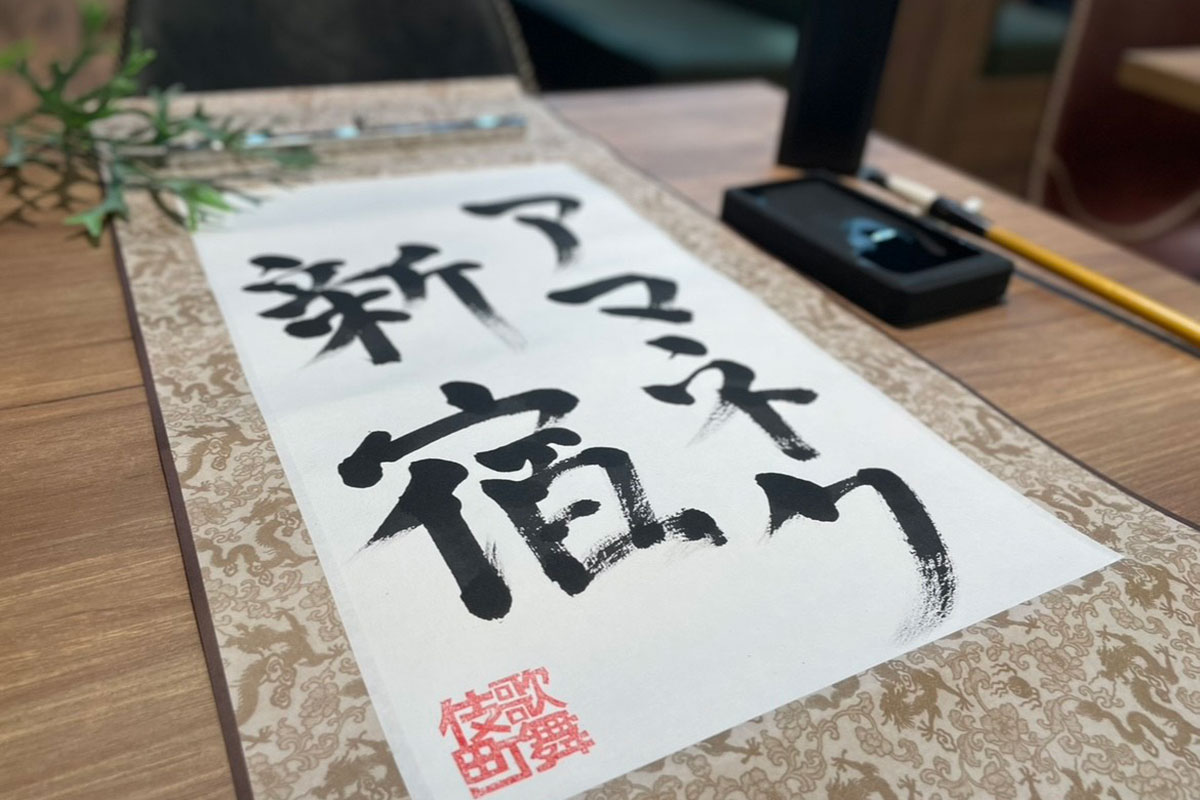 アマネク
新宿
歌舞
伎町